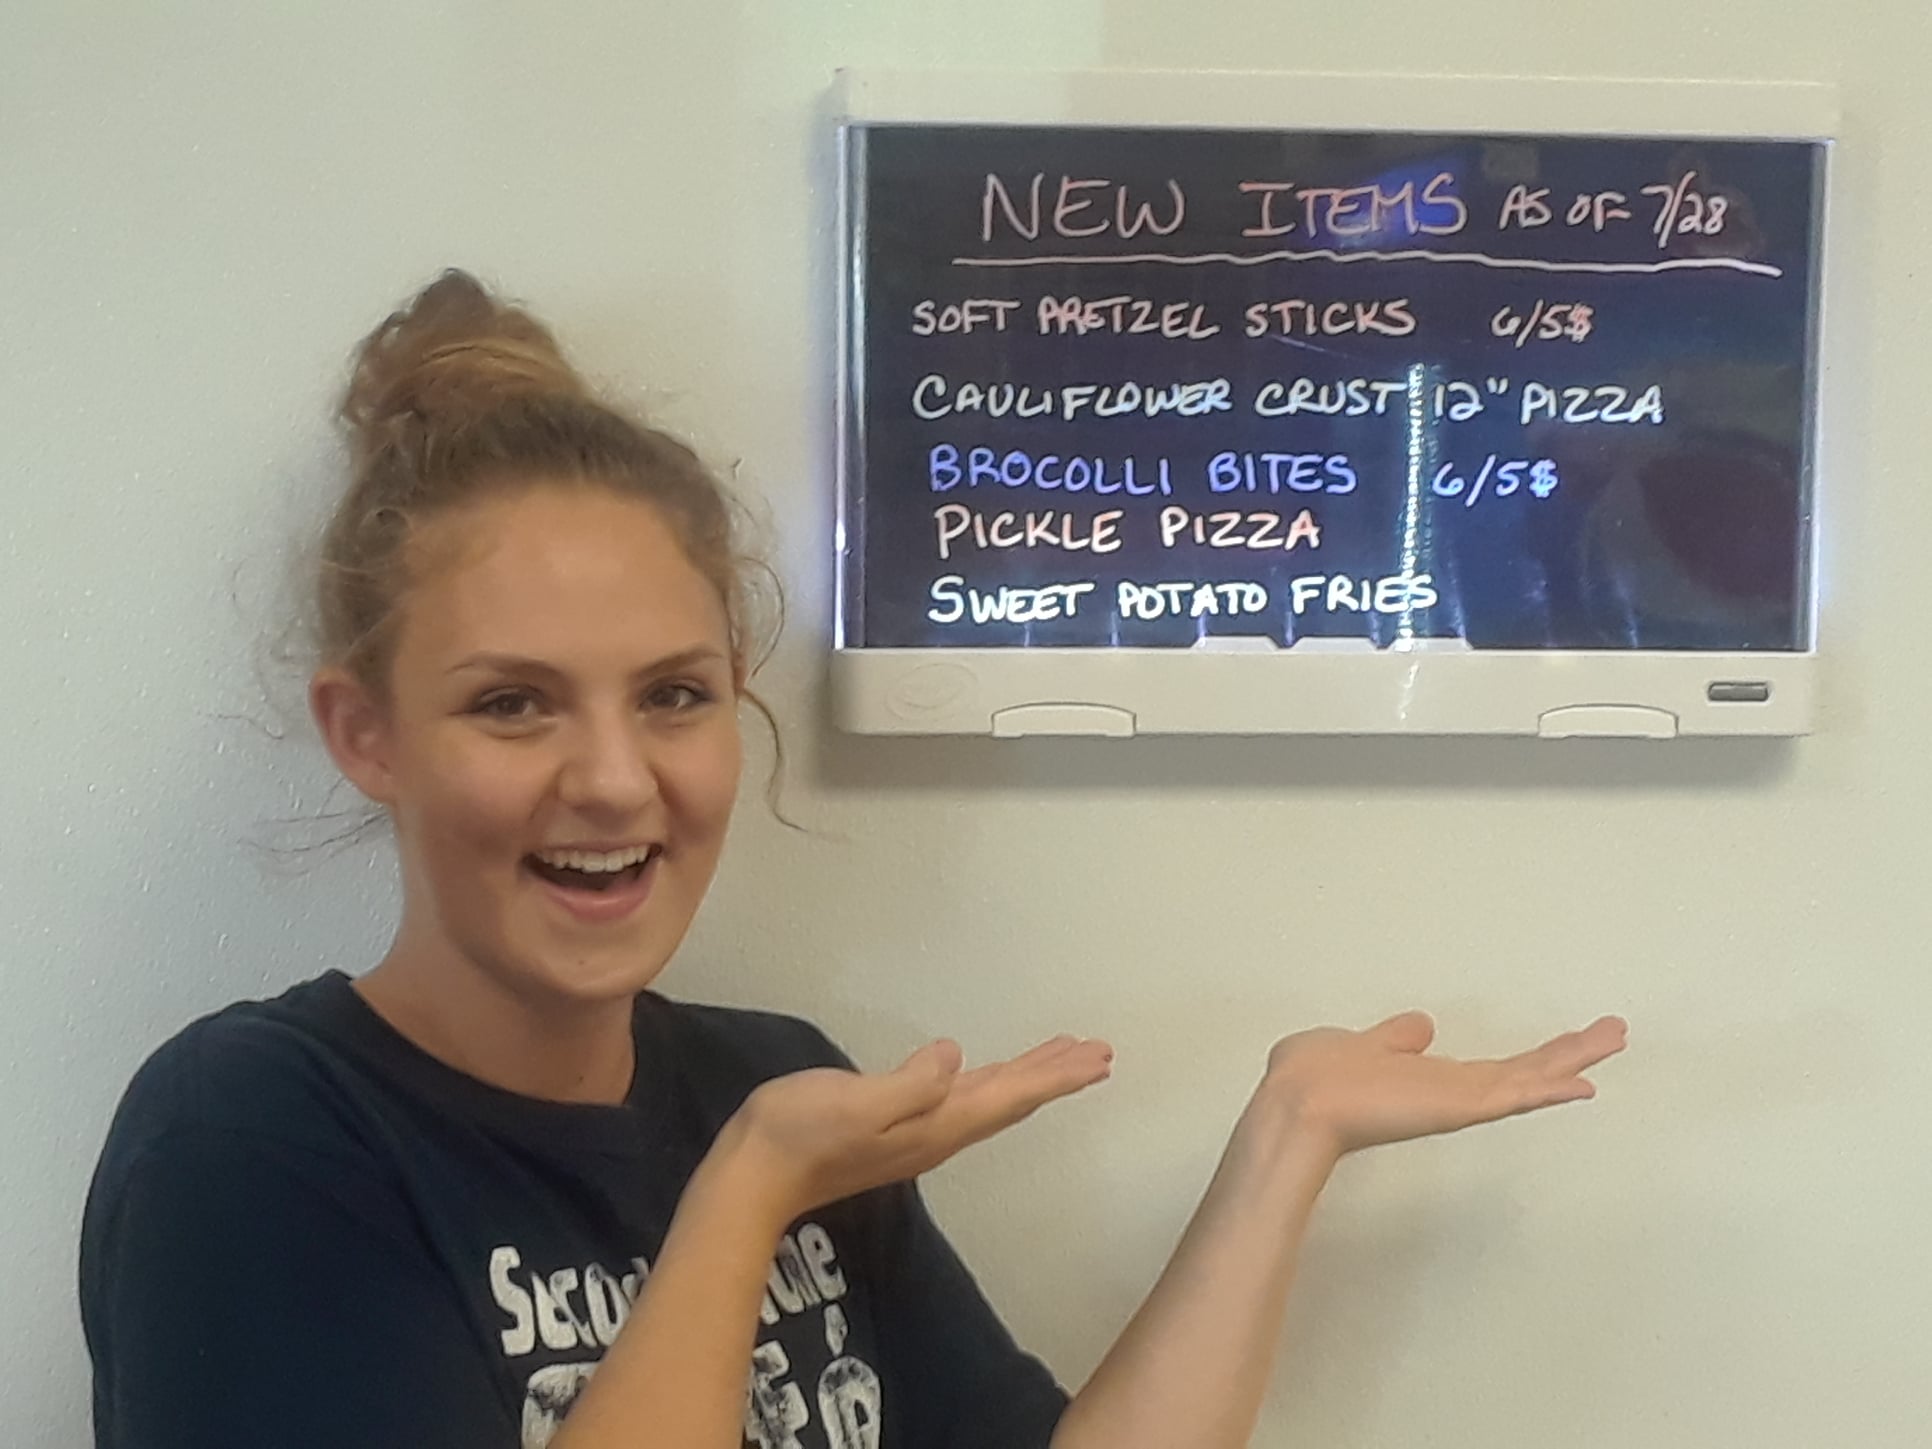 NEW ITEMS AS OF 7/28
SOFT PRETZEL STICKS 6/5$
CAULIFLOWER CRUST 12" PIZZA
BROCOLLI BITES 6/5$
PICKLE PIZZA
SWEET POTATO FRIES